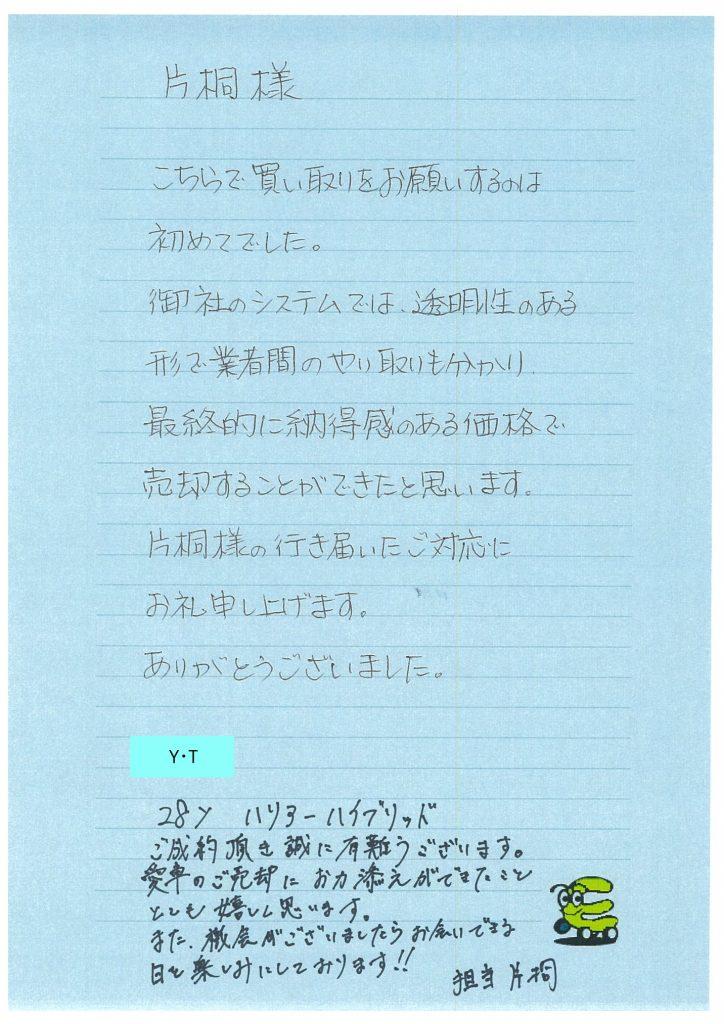 片桐様
こちらで買い取りをお願いするのは
初めてでした。
御社のシステムでは、透明性のある
形で業者間のやり取りも分かり、
最終的に納得感のある価格で
売却することができたと思います。
片桐様の行き届いたご対応に
お礼申し上げます。
ありがとうございました。
Y・T
28y ハリアーハイブリッド
ご成約頂き誠に有難うございます。
愛車のご売却にお力添えができたこと
とても嬉しく思います。
また、機会がございましたらお会いできる
日を楽しみにしております!!
担当 片桐